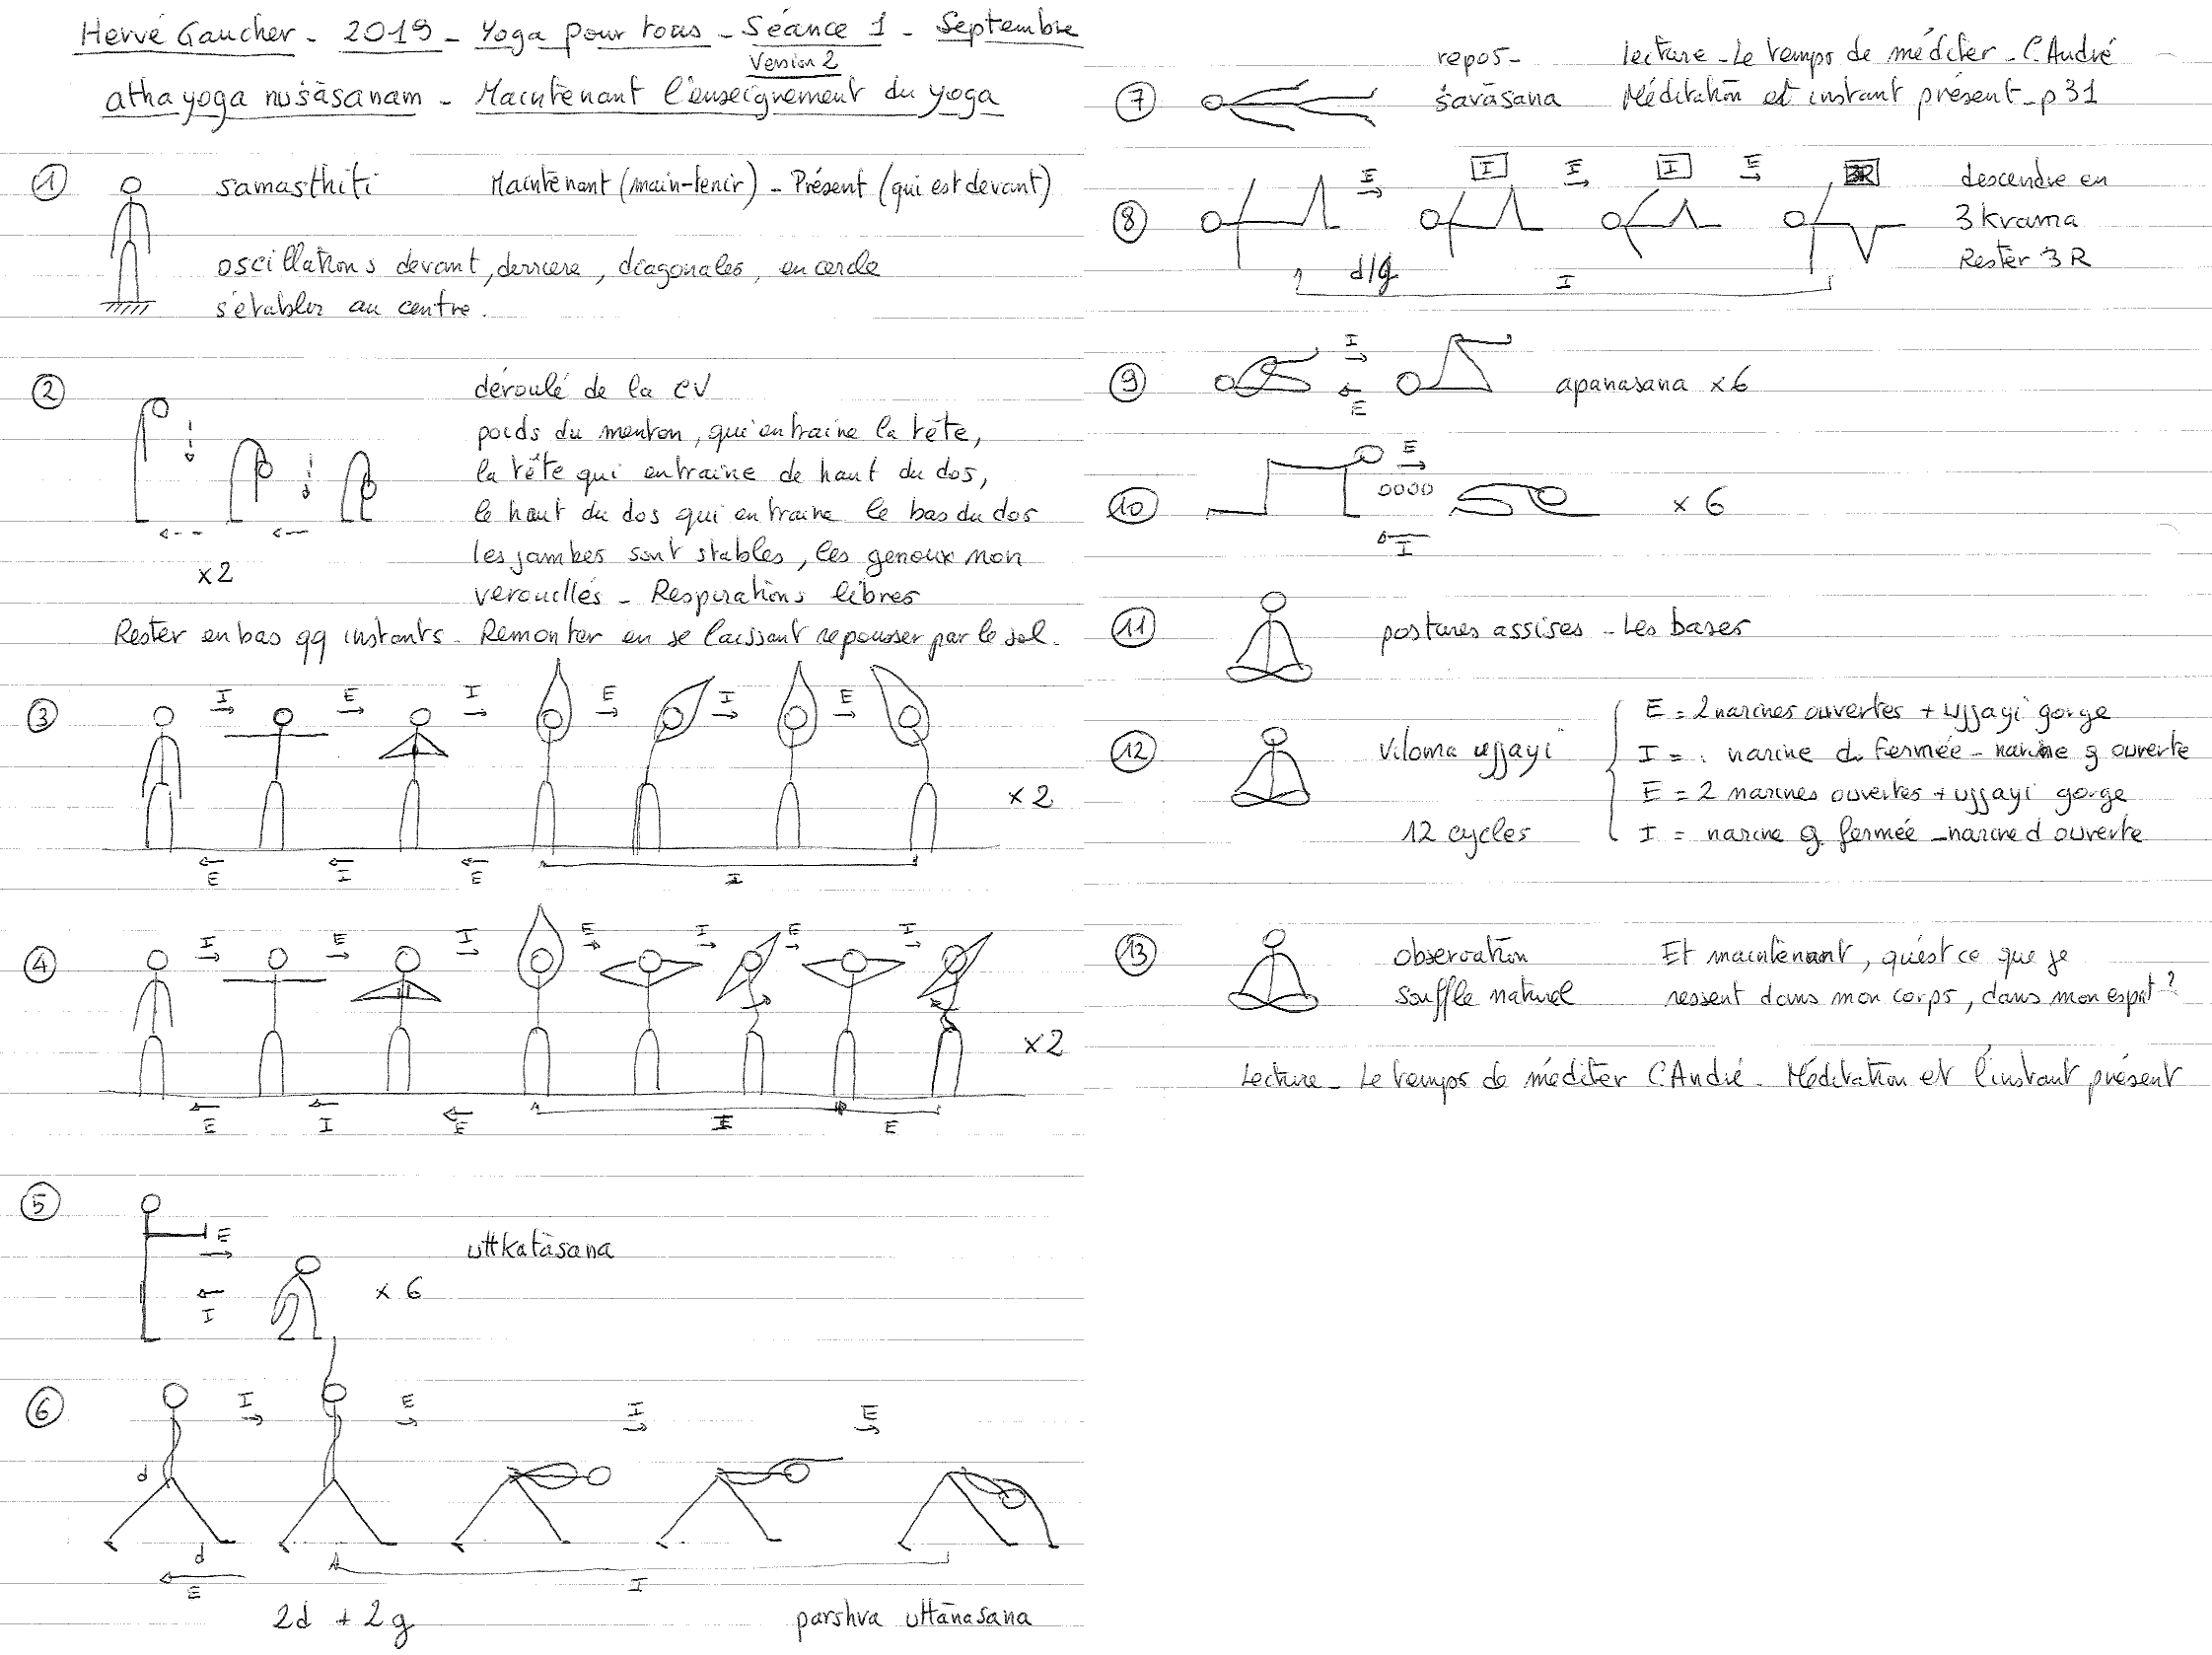 Hervé Gaucher - 2019 - Yoga pour tous - Séance 1 - Septembre
Version 2
atha yoga nuśāsanam - Maintenant l'enseignement du yoga
① samasthiti Maintenant (main-tenir) - Présent (qui est devant)
oscillations devant, derriere, diagonales, en cercle
s'établir au centre.
② déroulé de la CV
poids du menton, qui entraine la tête,
la tête qui entraine de haut du dos,
le haut du dos qui entraine le bas du dos
les jambes sont stables, les genoux non
x2
verouillés - Respirations libres
Rester en bas qq instants. Remonter en se laissant repousser par le sol.
③ I E I E I E
x 2
E I E I
④ I E I E I E I
x2
E I E I E
⑤ E
uttkatāsana
I x 6
⑥ I E I E
d
d
E I
2d + 2g parshva uttānasana
repos - lecture - Le temps de méditer - C. André
⑦ śavāsana Méditation et instant présent - p 31
I I E I E 3R descendre en
⑧ 3 krama
d/g I Rester 3 R
I
⑨ apanasana x 6
E
E
⑩ x 6
I
⑪ postures assises - Les bases
E = 2 narines ouvertes + ujjayi gorge
⑫ Viloma ujjayi I = : narine d. fermée - narine g ouverte
E = 2 narines ouvertes + ujjayi gorge
12 cycles I = narine g. fermée - narine d ouverte
⑬ observation Et maintenant, qu'est ce que je
souffle naturel ressent dans mon corps, dans mon esprit ?
Lecture - Le temps de méditer C. André - Méditation et l'instant présent